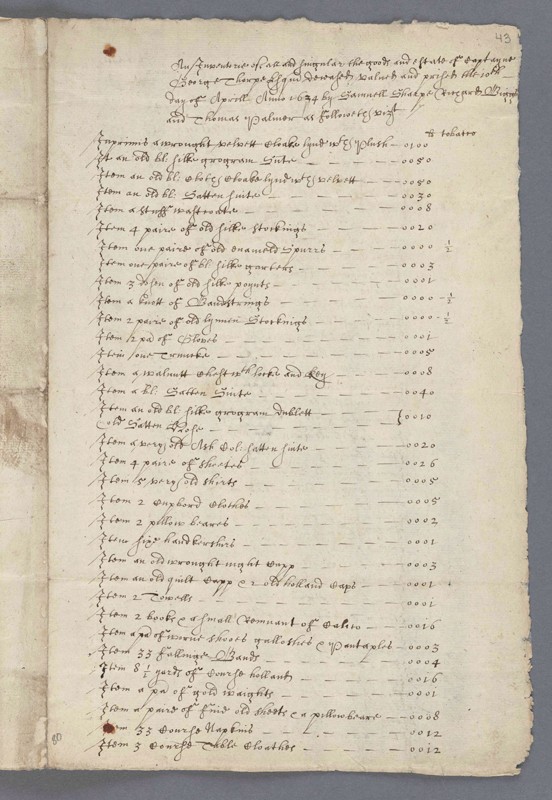 43
An Inventorie of all and singular the goods and estate of Captayne
George Thorpe Esquir deceased valued and prised the 10th
day of Aprill Anno 1634 by Samuell Sharpe Richard Biggs
and Thomas Palmer as followeth vizt
lb tobacco
Inprimis a wrought velvett Cloake lyned wth Plush 0100
It an old bl: silke grogram Sute 0050
Item an old bl: Cloth Cloake lyned wth velvett 0050
Item an old bl: Satten suite 0030
Item a stuff wastcoate 0008
Item 4 paire of old silke stockings 0020
Item one paire of old enameld Spurrs 0000 ½
Item one paire of bl silke garters 0003
Item 3 dozen of old silke poynts 0001
Item a knott of Bandstrings 0000 ½
Item 2 paire of old lynnen Stocknigs 0000 ½
Item 2 pa of Gloves 0001
Item one Truncke 0005
Item a walnutt Chest wth locke and key 0008
Item a bl: Satten Suite 0040
Item an old bl silke grogram dublett
old Satten Hose } 0010
Item a very old Ash Col: satten suite 0020
Item 4 paire of sheetes 0026
Item 5 very old shirts 0005
Item 2 Cupbord Clothes 0005
Item 2 pillowbeares 0002
Item sixe handkerthirs 0001
Item an old wrought night Capp 0003
Item an old quilt Capp & 2 old holland Caps 0001
Item 2 Towells 0001
Item 2 books & a small Remnant of Calico 0016
Item a pa of worne shooes galloshes & Pantaples 0003
Item 33 fallinge Bands 0004
Item 8 ½ yards of Course holland 0016
Item a pa of gold waights 0001
Item a paire of fine old sheets & a pillowbeare 0008
Item 33 Course Napkins 0012
Item 3 Course Table Cloathes 0012
80